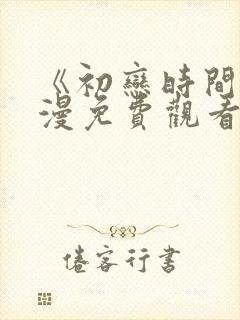 《初戀時間
漫免費觀看
倦客行書